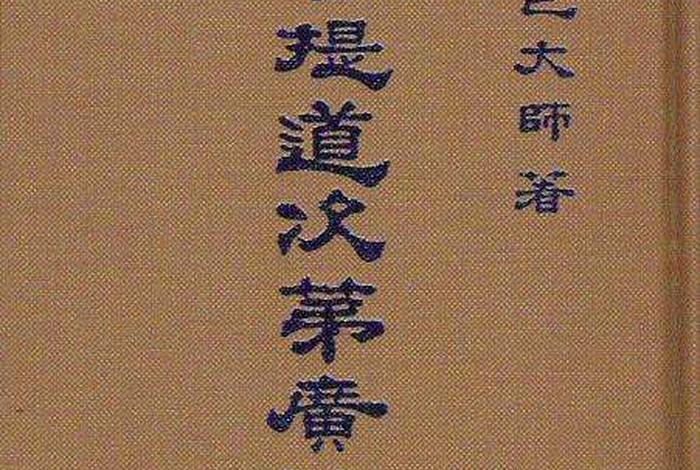 大師著
提道次第廣